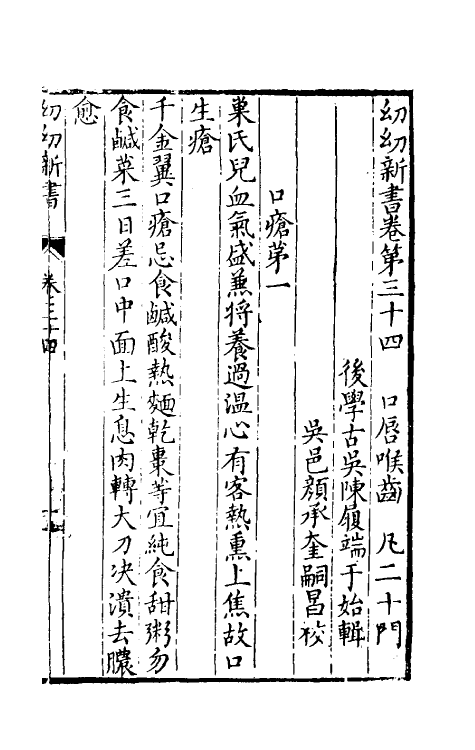 幼幼新書卷第三十四　口唇喉齒　凡二十門
後學古吳陳履端于始輯
吳邑顏承奎嗣昌挍
口瘡第一
巢氏兒血氣盛兼將養過温心有客熱熏上焦故口
生瘡
千金翼口瘡忌食鹹酸熱麵乾棗等宜純食甜粥勿
食鹹菜三日差口中面上生息肉轉大刀决潰去膿
愈
幼幼新書　卷三十四